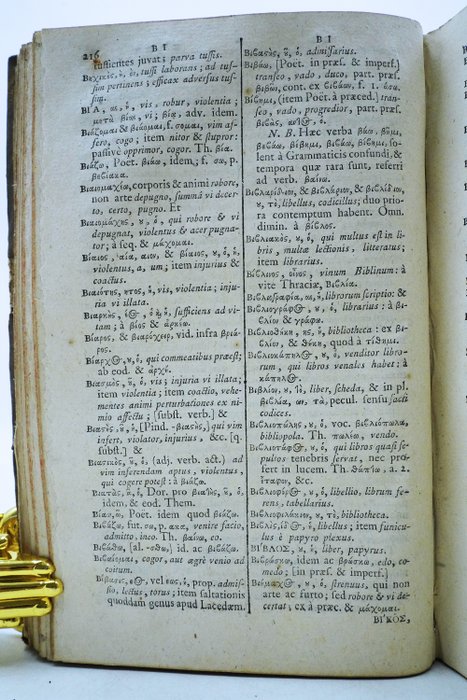 216
B I
tussientes juvat; parva tussis.
Βηχικὸς, ὁ, tussi laborans; ad tus-
sim pertinens; efficax adversus tus-
sim.
ΒΙΑ, ας, ἡ, vis, robur, violentia;
μετὰ βίας vi; βίᾳ, adv. idem.
Βιάζομαι & βιάομαι, f. σομαι, vim af-
fero, cogo; item nitor & stupror:
passivè apprimor, cogor. Th. βία.
Βιάζω, Poet. βιάω, idem; f. σω, p.
βεβίακα.
Βιαιομαχέω, corporis & animi robore,
non arte depugno, summâ vi decer-
to, certo, pugno. Et
Βιαιομάχης, ου, ὁ, qui robore & vi
depugnat, violentus & acer pugna-
tor; à seq. & μάχομαι.
Βίαιος, αία, αιον, & βίαιος, ου, ὁ, ἡ,
violentus, a, um; item injurius &
coactus.
Βιαιότης, ητος, ἡ, vis, violentia; inju-
ria vi illata.
Βιαρκὴς, έος, ὁ, ἡ, sufficiens ad vi-
tam; à βίος & ἀρκέω.
Βίαρος, & βιαρόχειρ, vid. infra βριά-
ρος.
Βίαρχος, ου, ὁ, qui commeatibus præest;
ab eod. & ἀρχή.
Βιασμὸς, οῦ, ὁ, vis; injuria vi illata;
item violentia; item coactio, vehe-
mentes animi perturbationes ex ni-
mio affectu; [subst. verb.] &
Βιαστὴς, οῦ, ὁ, [Pind. -βιατὰς,] qui vim
infert, violator, injurius, &c. [q.
subst.] &
Βιαστικὸς, οῦ, ὁ, (adj. verb. act.) ad
vim inferendam aptus, violentus,
qui cogere potest: à βιάζω.
Βιατὰς, ᾶ, ὁ, Dor. pro βιατὴς, οῦ, ὁ,
idem, & eod. Them.
Βιάω, Poet. idem quod βιάζω.
Βιβάζω, fut. σω, p. ακα, venire facio,
admitto, ineo. Th. βαίνω, eo.
Βιβάσθω, [al. -σθω,] id. ac βιβάζω.
Βιβάζομαι, cogor, aut ægrè venio ad
coitum.
Βίβασις, εως vel εως, ἡ, prop. admis-
sio, lectus, torus; item saltationis
quoddam genus apud Lacedæm.
B I
Βιβαστὴς, οῦ, ὁ, admissarius.
Βιβάω, [Poet. in præs. & imperf.]
transeo, vado, duco, part. præs.
βιβῶν, cont. ex βιβάων, f. 1. άσω.
Βίβημι, (item Poet. à præced.) trans-
eo, vado, progredior, part. præs.
βιβὰς, άντος, ὁ.
N. B. Hæc verba βάω, βῆμι,
βιβάω, βίβημι, βιβάω, βίβημι, so-
lent à Grammaticis confundi, &
tempora quæ rara sunt, referri
ad verb. βαίνω.
Βιβλαρίδιον, & βιβλάριον, & βιβλίδιον,
ου, τὸ, libellus, codicillus; duo prio-
ra contemptum habent. Omn.
dimin. à βίβλος.
Βιβλιακὸς, οῦ, ὁ, qui multus est in li-
bris, multæ lectionis, litteratus;
item librarius.
Βίβλιος, οἶνος, vinum Biblinum: à
vite Thraciæ, Βιβλία.
Βιβλιογραφία, ας, ἡ, librorum scriptio: &
Βιβλιογράφος, ου, ὁ, librarius: à βι-
βλίον & γράφω.
Βιβλιοθήκη, ης, ἡ, bibliotheca: ex βι-
βλίον, & θήκη, quod à τίθημι.
Βιβλιοκάπηλος, ου, ὁ, venditor libro-
rum, qui libros venales habet: à
κάπηλος.
Βιβλίον, ου, τὸ, liber, scheda, & in pl.
βιβλία, ων, τὰ, pecul. sensu sacri
codices.
Βιβλιοπώλης, ου, ὁ, voc. βιβλιοπῶλα,
bibliopola. Th. πωλέω, vendo.
Βιβλιοτάφος, ου, ὁ, qui libros quasi se-
pultos tenebris servat, nec pro-
fert in lucem. Th. θάπτω, a. 2.
ἔταφον, &c.
Βιβλιοφόρος, ου, ὁ, libellio, librum fe-
rens, tabellarius.
Βιβλιοφυλάκιον, ου, τὸ, bibliotheca.
Βιβλὶς, ίδος, ἡ, libellus; item funicu-
lus è papyro plexus.
ΒΙ´ΒΛΟΣ, ου, ἡ, liber, papyrus.
Βιβρώσκω, idem ac βρώσκω, edo, co-
medo; [in præs. & imperf.]
Βιομάχος, ου, ὁ, strenuus, qui non
arte ac furto; sed robore & vi de-
certat; ex à præc. & μάχομαι.
ΒΙ´ΚΟΣ,